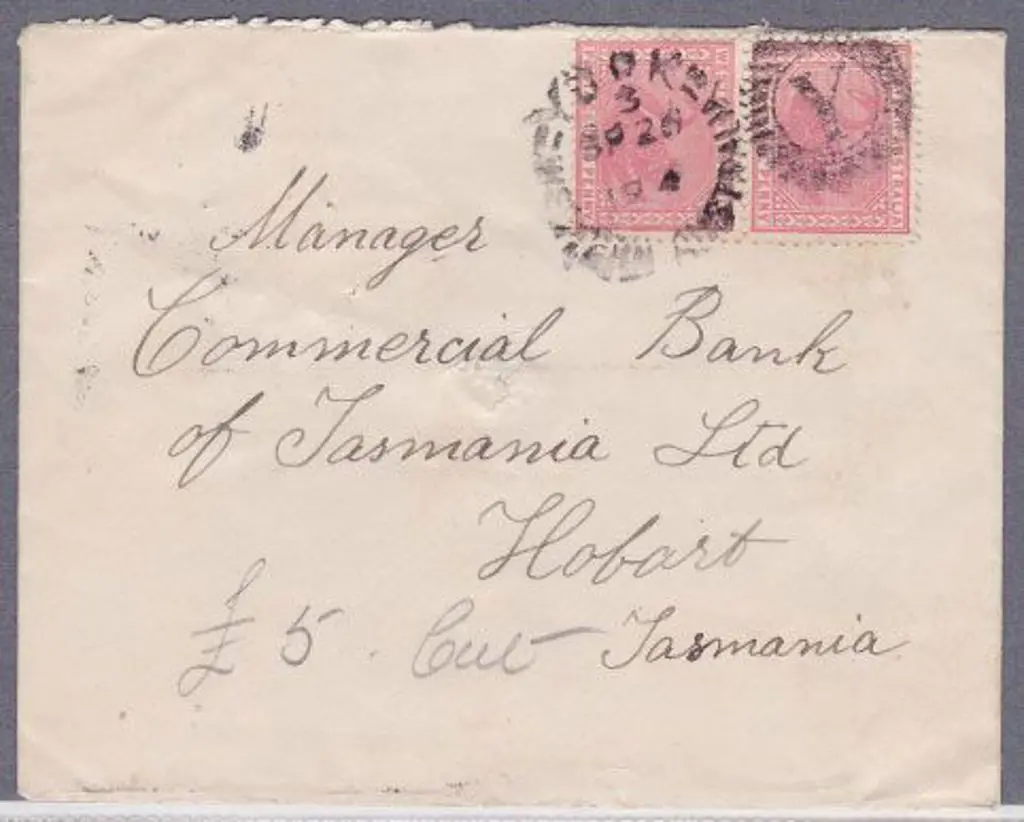 3
26
Manager
Commercial Bank
of Tasmania Ltd
Hobart
£5. Cut Tasmania